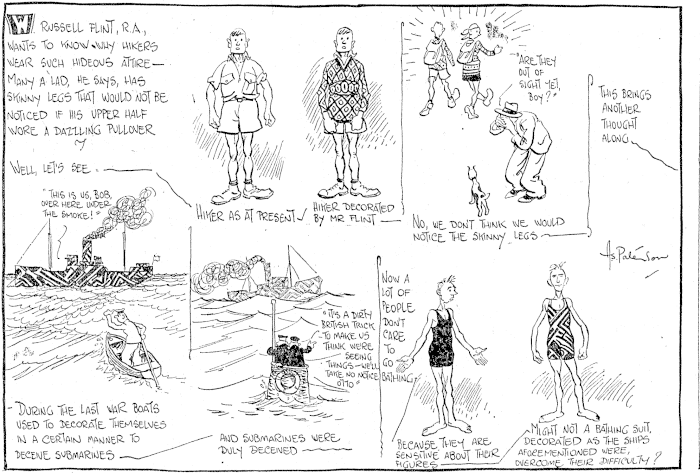 W. RUSSELL FLINT, R.A.,
WANTS TO KNOW WHY HIKERS
WEAR SUCH HIDEOUS ATTIRE —
MANY A LAD, HE SAYS, HAS
SKINNY LEGS THAT WOULD NOT BE
NOTICED IF HIS UPPER HALF
WORE A DAZZLING PULLOVER
WELL, LET'S SEE.
HIKER AS AT PRESENT
HIKER DECORATED
BY MR FLINT
"ARE THEY
OUT OF
SIGHT YET,
BOY?"
NO, WE DON'T THINK WE WOULD
NOTICE THE SKINNY LEGS
THIS BRINGS
ANOTHER
THOUGHT
ALONG.
"THIS IS US, BOB,
OVER HERE UNDER
THE SMOKE!"
DURING THE LAST WAR BOATS
USED TO DECORATE THEMSELVES
IN A CERTAIN MANNER TO
DECEIVE SUBMARINES
"IT'S A DIRTY
BRITISH TRICK
TO MAKE US
THINK WE'RE
SEEING
THINGS — WE'LL
TAKE NO NOTICE
OTTO"
AND SUBMARINES WERE
DULY DECEIVED
NOW A
LOT OF
PEOPLE
DON'T
CARE
TO
GO
BATHING
BECAUSE THEY ARE
SENSITIVE ABOUT THEIR
FIGURES
MIGHT NOT A BATHING SUIT,
DECORATED AS THE SHIPS
AFOREMENTIONED WERE,
OVERCOME THEIR DIFFICULTY?